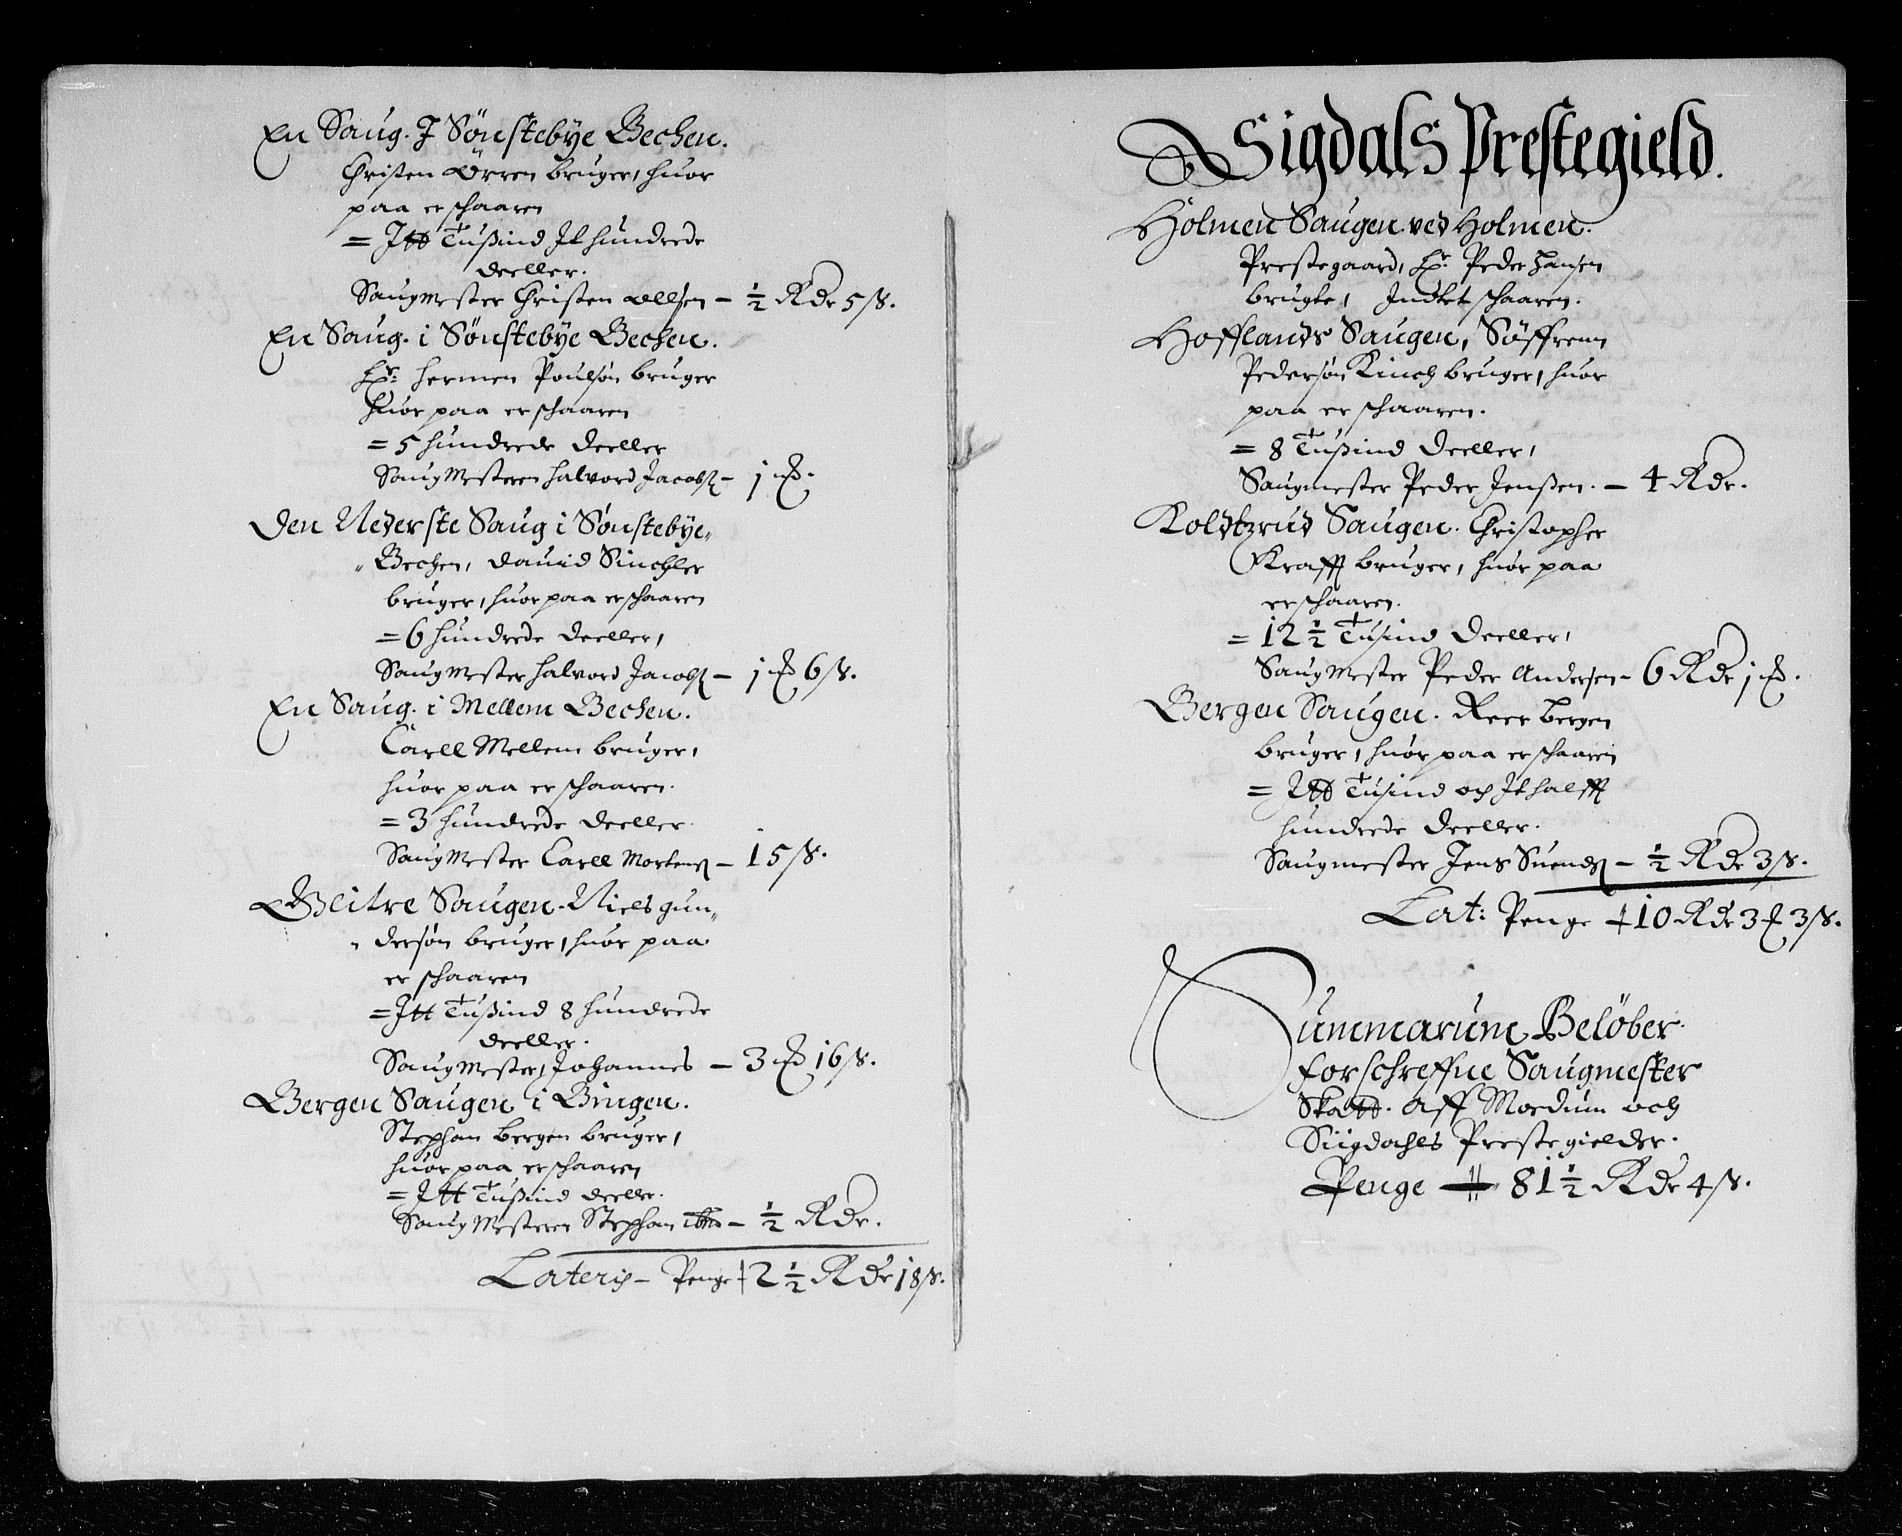 En Saug. J Sönstebÿe Bechen.
Christen Ørren bruger, huor
paa er schaaren
= Jtt Tußind Jt hundrede
deeller.
Saugmester Christen Ollsen – ½ Rdr 5 ß.
En Saug. i Sönstebÿe Bechen.
Hr: Hermen Poulsøn bruger
huor paa er schaaren
= 5 hundrede deeller
Saugmesteren Halvord Jacobß – 1 ⅌.
Den Nederste Saug i Sönstebÿe„
„ Bechen, Dauid Sinchler
bruger, huor paa er schaaren
= 6 hundrede deeller,
Saugmester Halvord Jacobß – 1 ⅌ 6 ß.
En Saug. i Mellem Bechen.
Carll Mellem bruger,
huor paa er schaaren.
= 3 hundrede deeller.
Saugmester Carll Mortenß – 15 ß.
Glitre Saugen. Niels gun„
„ dersøn bruger, huor paa
er schaaren
= Jtt Tußind 8 hundrede
deeller.
Saugmester, Johannes – 3 ⅌ 16 ß.
Bergen Saugen i Bingen.
Stephan bergen bruger,
huor paa er schaaren
= Jtt Tußind deeller.
Saugmesteren Stephan ibm – ½ Rdr.
Lateris – Penge 2 ½ Rdr 18 ß.
Sigdals Prestegield.
Holmen Saugen ved Holmen.
Prestegaard, Hr: Peder Hansen
brugte, Jndtet schaaren.
Hofflands Saugen, Söffrenn
Pedersøn Kinch bruger, huor
paa er schaaren.
= 8 Tußind deeller,
Saugmester Peder Jenßen. – 4 Rdr.
Koldtzrud Saugen. Christopher
Krafft bruger, huor paa
er schaaren.
= 12 ½ Tusind deeller,
Saugmester Peder Andersen – 6 Rdr 1 ⅌.
Bergen Saugen. Reer bergen
bruger, huor paa er schaaren
= Jtt Tusind och Jt halfft
hundrede deeller.
Saugmester Jens Suendß – ½ Rdr 3 ß.
Lat: Penge 10 Rdr 3 ⅌ 3 ß.
Summarum Belöber
forschreffne Saugmester
Skatt. Aff Modum och
Siigdahls Prestegielder.
Penge 81 ½ Rdr 4 ß.